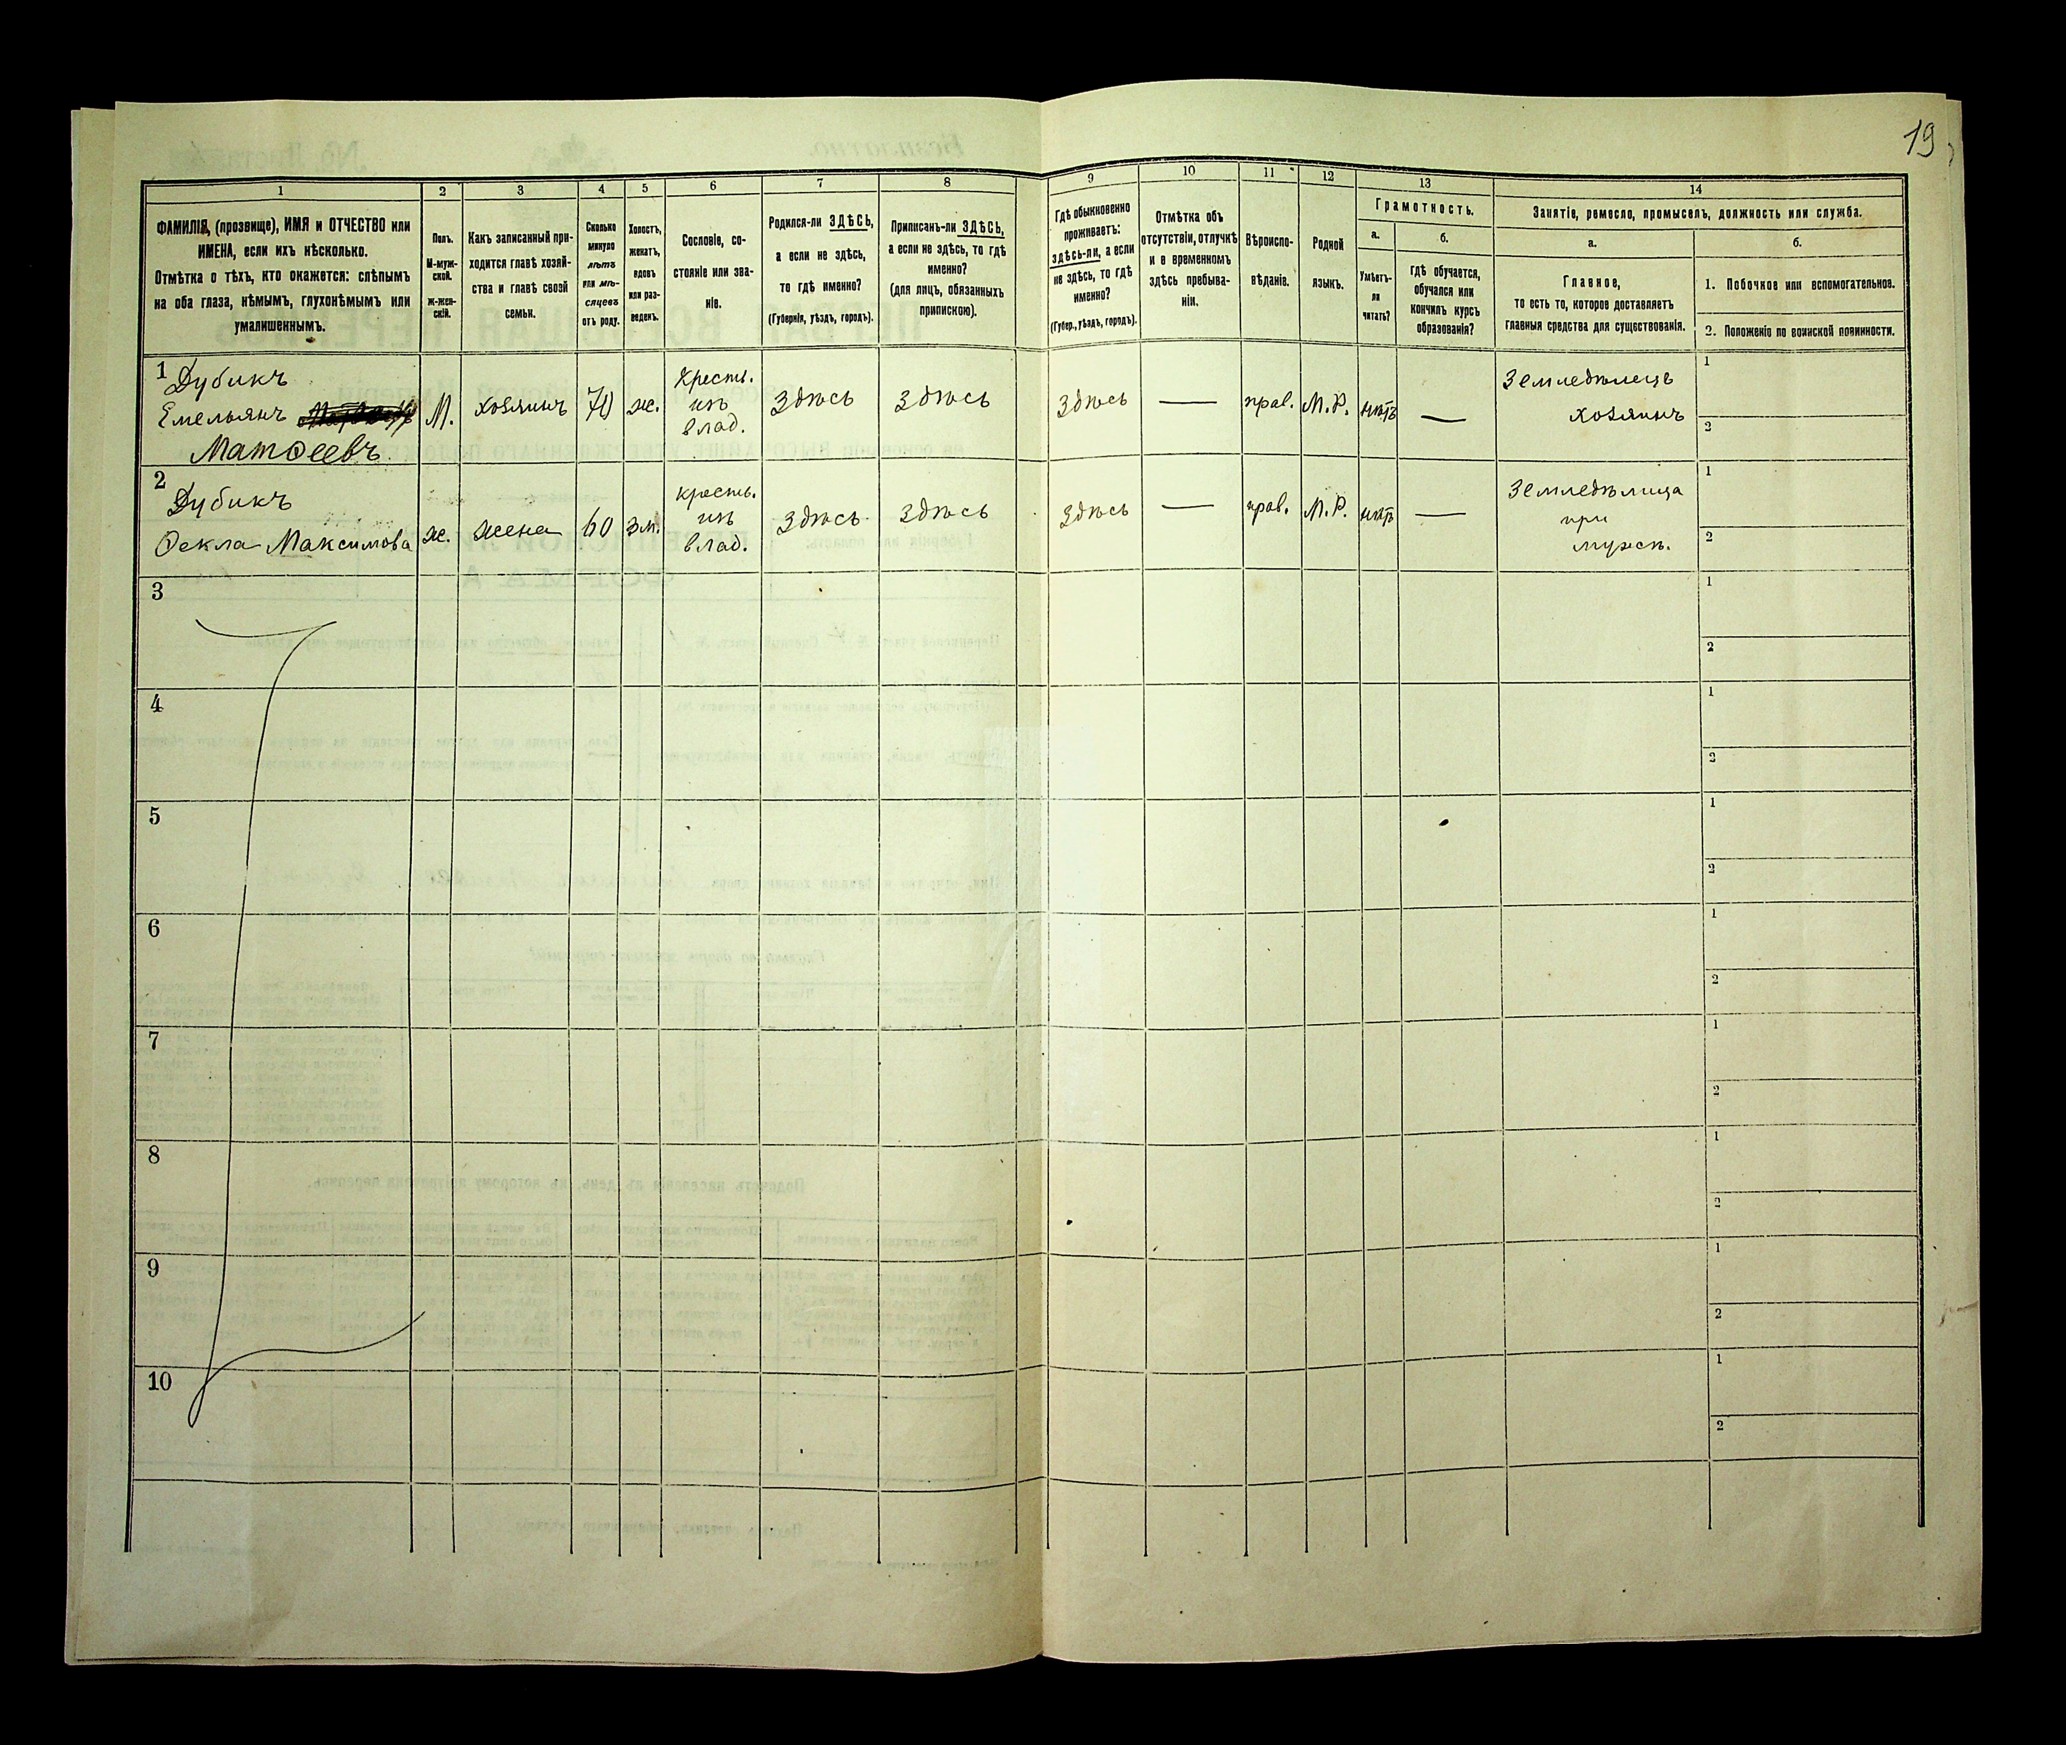 19
1
ФАМИЛІЯ, (прозвище), ИМЯ и ОТЧЕСТВО или
ИМЕНА, если ихъ нѣсколько.
Отмѣтка о тѣхъ, кто окажется: слѣпымъ
на оба глаза, нѣмымъ, глухонѣмымъ или
умалишеннымъ.
2
Полъ.
М-муж-
ской.
Ж-жен-
скій.
3
Какъ записанный при-
ходится главѣ хозяй-
ства и главѣ своей
семьи.
4
Сколько
минуло
лѣтъ
или мѣ-
сяцевъ
отъ роду.
5
Холостъ,
женатъ,
вдовъ
или раз-
веденъ.
6
Сословіе, со-
стояніе или зва-
ніе.
7
Родился-ли ЗДѢСЬ,
а если не здѣсь,
то гдѣ именно?
(Губернія, уѣздъ, городъ).
8
Приписанъ-ли ЗДѢСЬ,
а если не здѣсь, то гдѣ
именно?
(для лицъ, обязанныхъ
припискою).
9
Гдѣ обыкновенно
проживаетъ:
здѣсь-ли, а если
не здѣсь, то гдѣ
именно?
(Губер., уѣздъ, городъ).
10
Отмѣтка объ
отсутствіи, отлучкѣ
и о временномъ
здѣсь пребыва-
ніи.
11
Вѣроиспо-
вѣданіе.
12
Родной
языкъ.
13
Грамотность.
а.
Умѣетъ-
ли
читать?
б.
Гдѣ обучается,
обучался или
кончилъ курсъ
образованія?
14
Занятіе, ремесло, промыселъ, должность или служба.
а.
Главное,
то есть то, которое доставляетъ
главныя средства для существованія.
б.
1. Побочное или вспомогательное.
2. Положеніе по воинской повинности.
1 Дубикъ
Емельянъ
Матѳеевъ
М.
хозяинъ
70
ж.
крест.
изъ
влад.
Здѣсь
Здѣсь
Здѣсь
—
прав.
М.Р.
нѣтъ
—
Земледѣлецъ
хозяинъ
1
2
2
Дубикъ
Ѳекла Максимова
ж.
жена
60
зм.
крест.
изъ
влад.
Здѣсь
Здѣсь
Здѣсь
—
прав.
М.Р.
нѣтъ
—
Земледѣлица
при
мужѣ.
1
2
3
1
2
4
1
2
5
1
2
6
1
2
7
1
2
8
1
2
9
1
2
10
1
2